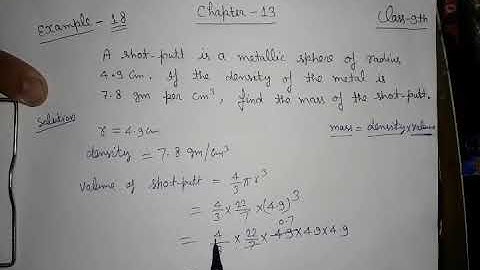 Example - 18
Chapter - 13
Class-9th
A shot-putt is a metallic sphere of radius
4.9 cm. If the density of the metal is
7.8 gm per cm³, find the mass of the shot-putt.
Solution
r = 4.9cm
mass = density x volume
density = 7.8 gm/cm³
volume of shot-putt = 4/3 π r³
= 4/3 x 22/7 x (4.9)³
0.7
= 4/3 x 22/7 x 4.9 x 4.9 x 4.9